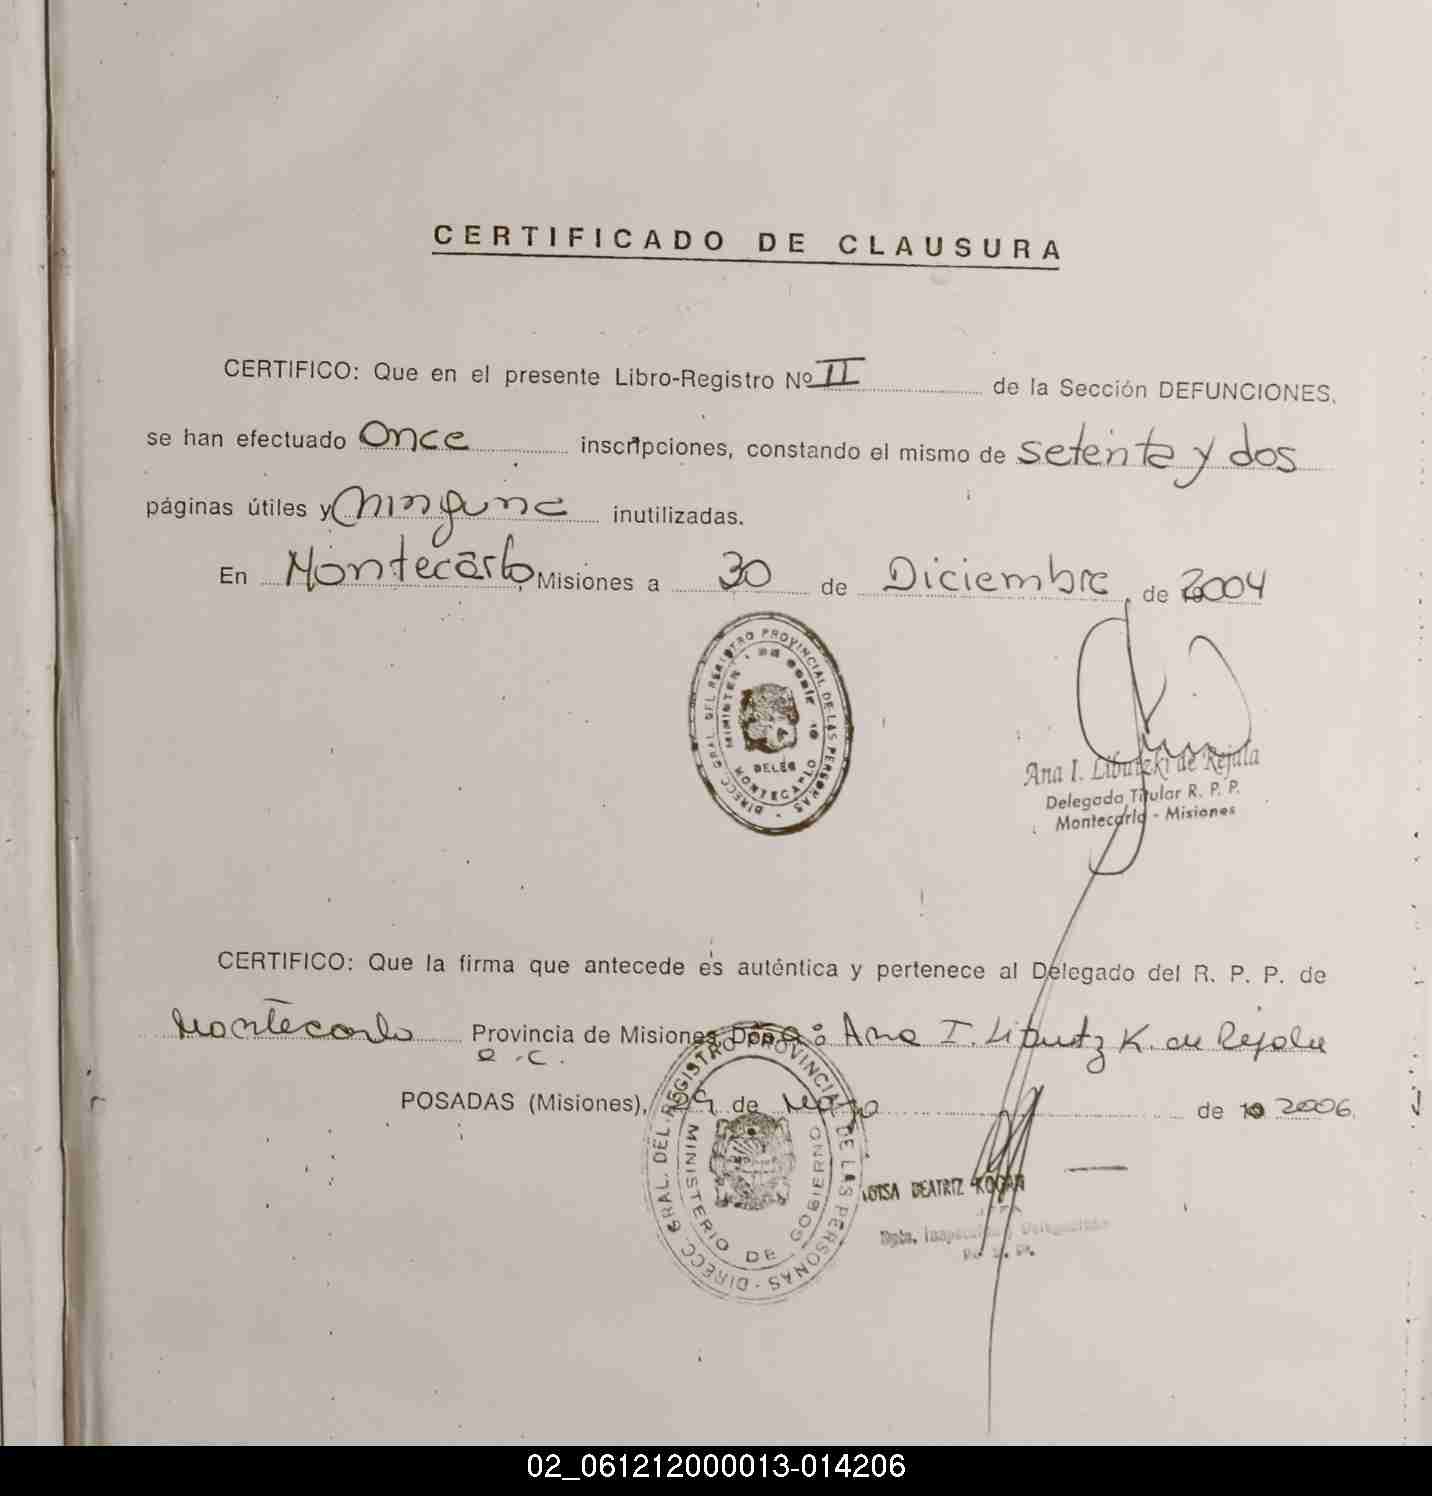 CERTIFICADO DE CLAUSURA
CERTIFICO: Que en el presente Libro-Registro Nº II de la Sección DEFUNCIONES,
se han efectuado Once inscripciones, constando el mismo de setenta y dos
páginas útiles y ninguna inutilizadas.
En Montecarlo, Misiones a 30 de Diciembre de 2004
DIRECC. GRAL. DEL REGISTRO PROVINCIAL DE LAS PERSONAS
MONTECARLO
Ana I. Libutzki de Rejala
Delegada Titular R. P. P.
Montecarlo - Misiones
CERTIFICO: Que la firma que antecede es auténtica y pertenece al Delegado del R. P. P. de
Montecarlo Provincia de Misiones Ana I. Libutz K. de Rejala
e.c.
POSADAS (Misiones), 29 de de 2006
DIRECC. GRAL. DEL REGISTRO PROVINCIAL DE LAS PERSONAS
MINISTERIO DE GOBIERNO
BEATRIZ KOGAN
Dpto.
02_061212000013-014206